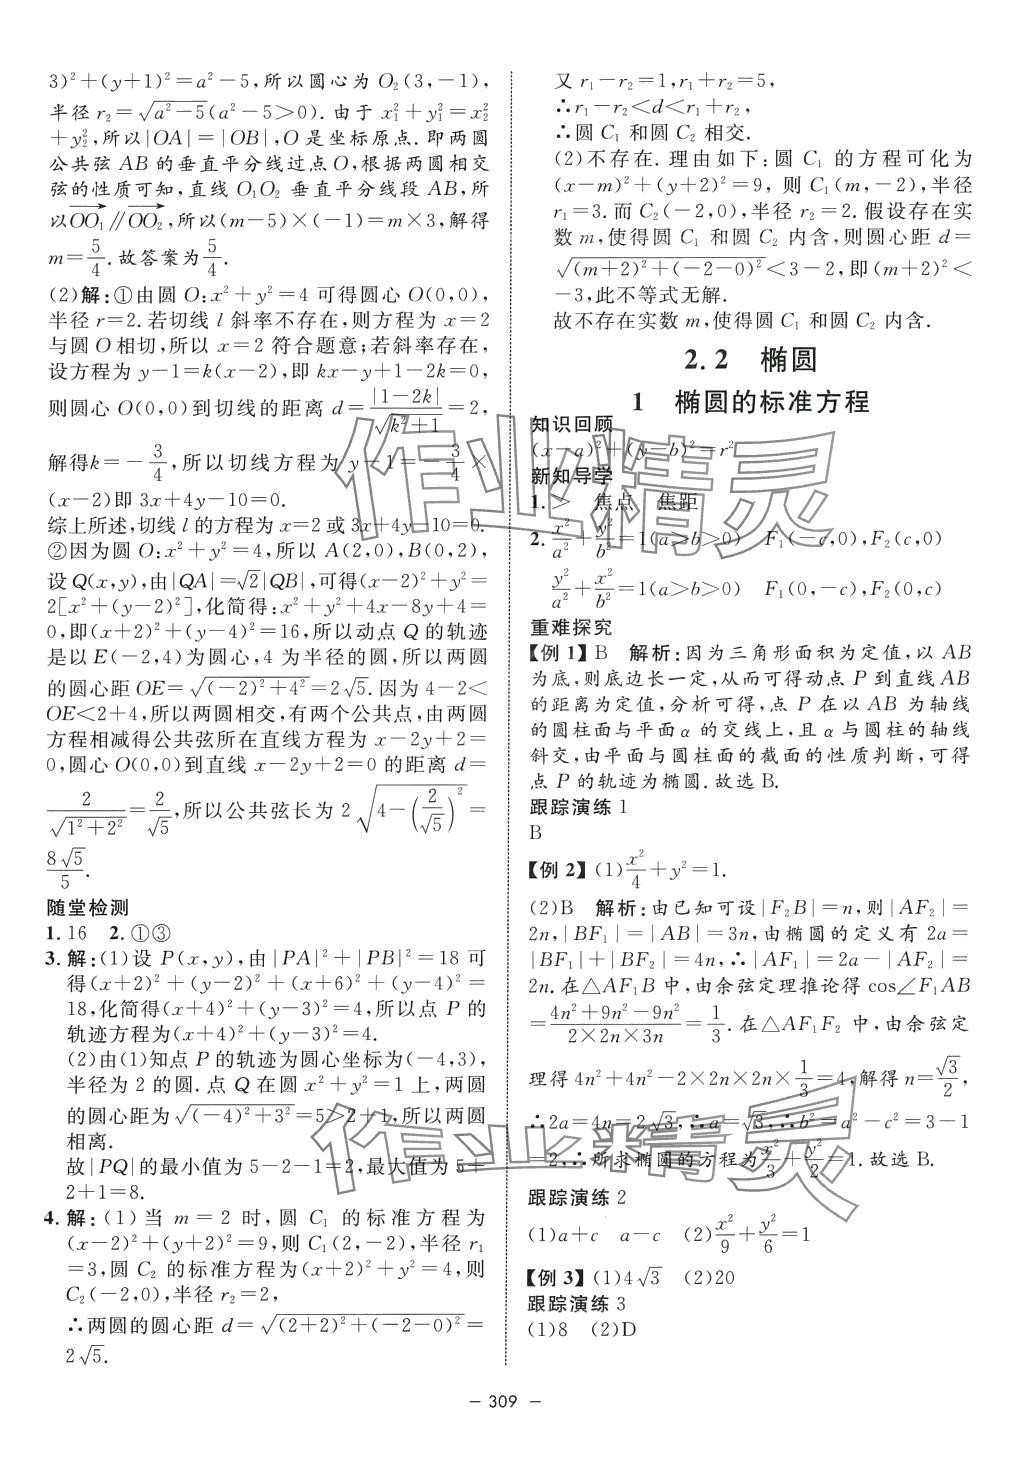 3)²+(y+1)²=a²-5,所以圆心为 O₂(3,-1),
半径 r₂=√(a²-5)(a²-5>0).由于 x₁²+y₁²=x₂²
+y₂²,所以|OA|=|OB|,O 是坐标原点.即两圆
公共弦 AB 的垂直平分线过点 O,根据两圆相交
弦的性质可知,直线 O₁O₂ 垂直平分线段 AB,所
以OO₁→∥OO₂→,所以(m-5)×(-1)=m×3,解得
m=5/4.故答案为5/4.
(2)解:①由圆 O:x²+y²=4 可得圆心 O(0,0),
半径 r=2.若切线 l 斜率不存在,则方程为 x=2
与圆 O 相切,所以 x=2 符合题意;若斜率存在,
设方程为 y-1=k(x-2),即 kx-y+1-2k=0,
则圆心 O(0,0)到切线的距离 d=|1-2k|/√(k²+1)=2,
解得k=-3/4,所以切线方程为 y-1=-3/4×
(x-2)即 3x+4y-10=0.
综上所述,切线 l 的方程为 x=2 或 3x+4y-10=0.
②因为圆 O:x²+y²=4,所以 A(2,0),B(0,2),
设 Q(x,y),由|QA|=√2|QB|,可得(x-2)²+y²=
2[x²+(y-2)²],化简得:x²+y²+4x-8y+4=
0,即(x+2)²+(y-4)²=16,所以动点 Q 的轨迹
是以 E(-2,4)为圆心,4 为半径的圆,所以两圆
的圆心距 OE=√((-2)²+4²)=2√5.因为 4-2<
OE<2+4,所以两圆相交,有两个公共点,由两圆
方程相减得公共弦所在直线方程为 x-2y+2=
0,圆心 O(0,0)到直线 x-2y+2=0 的距离 d=
2/√(1²+2²)=2/√5,所以公共弦长为 2√(4-(2/√5)²)=
8√5/5.
随堂检测
1. 16 2. ①③
3. 解:(1)设 P(x,y),由|PA|²+|PB|²=18 可
得(x+2)²+(y-2)²+(x+6)²+(y-4)²=
18,化简得(x+4)²+(y-3)²=4,所以点 P 的
轨迹方程为(x+4)²+(y-3)²=4.
(2)由(1)知点 P 的轨迹为圆心坐标为(-4,3),
半径为 2 的圆.点 Q 在圆 x²+y²=1 上,两圆
的圆心距为√((-4)²+3²)=5>2+1,所以两圆
相离.
故|PQ|的最小值为 5-2-1=2,最大值为 5+
2+1=8.
4. 解:(1)当 m=2 时,圆 C₁ 的标准方程为
(x-2)²+(y+2)²=9,则 C₁(2,-2),半径 r₁
=3,圆 C₂ 的标准方程为(x+2)²+y²=4,则
C₂(-2,0),半径 r₂=2,
∴两圆的圆心距 d=√((2+2)²+(-2-0)²)=
2√5.
又 r₁-r₂=1,r₁+r₂=5,
∴r₁-r₂<d<r₁+r₂,
∴圆 C₁ 和圆 C₂ 相交.
(2)不存在.理由如下:圆 C₁ 的方程可化为
(x-m)²+(y+2)²=9,则 C₁(m,-2),半径
r₁=3.而 C₂(-2,0),半径 r₂=2.假设存在实
数 m,使得圆 C₁ 和圆 C₂ 内含,则圆心距 d=
√((m+2)²+(-2-0)²)<3-2,即(m+2)²<
-3,此不等式无解.
故不存在实数 m,使得圆 C₁ 和圆 C₂ 内含.
2.2 椭圆
1 椭圆的标准方程
知识回顾
(x-a)²+(y-b)²=r²
新知导学
1. > 焦点 焦距
2. x²/a²+y²/b²=1(a>b>0) F₁(-c,0),F₂(c,0)
y²/a²+x²/b²=1(a>b>0) F₁(0,-c),F₂(0,c)
重难探究
【例 1】B 解析:因为三角形面积为定值,以 AB
为底,则底边长一定,从而可得动点 P 到直线 AB
的距离为定值,分析可得,点 P 在以 AB 为轴线
的圆柱面与平面 α 的交线上,且 α 与圆柱的轴线
斜交,由平面与圆柱面的截面的性质判断,可得
点 P 的轨迹为椭圆.故选 B.
跟踪演练 1
B
【例 2】(1)x²/4+y²=1.
(2)B 解析:由已知可设|F₂B|=n,则|AF₂|=
2n,|BF₁|=|AB|=3n,由椭圆的定义有 2a=
|BF₁|+|BF₂|=4n,∴|AF₁|=2a-|AF₂|=
2n.在△AF₁B 中,由余弦定理推论得 cos∠F₁AB
=(4n²+9n²-9n²)/(2×2n×3n)=1/3.在△AF₁F₂ 中,由余弦定
理得 4n²+4n²-2×2n×2n×1/3=4,解得 n=√3/2,
∴2a=4n=2√3,∴a=√3,∴b²=a²-c²=3-1
=2,∴所求椭圆的方程为x²/3+y²/2=1.故选 B.
跟踪演练 2
(1)a+c a-c (2)x²/9+y²/6=1
【例 3】(1)4√3 (2)20
跟踪演练 3
(1)8 (2)D
- 309 -
作业精灵
作业精灵